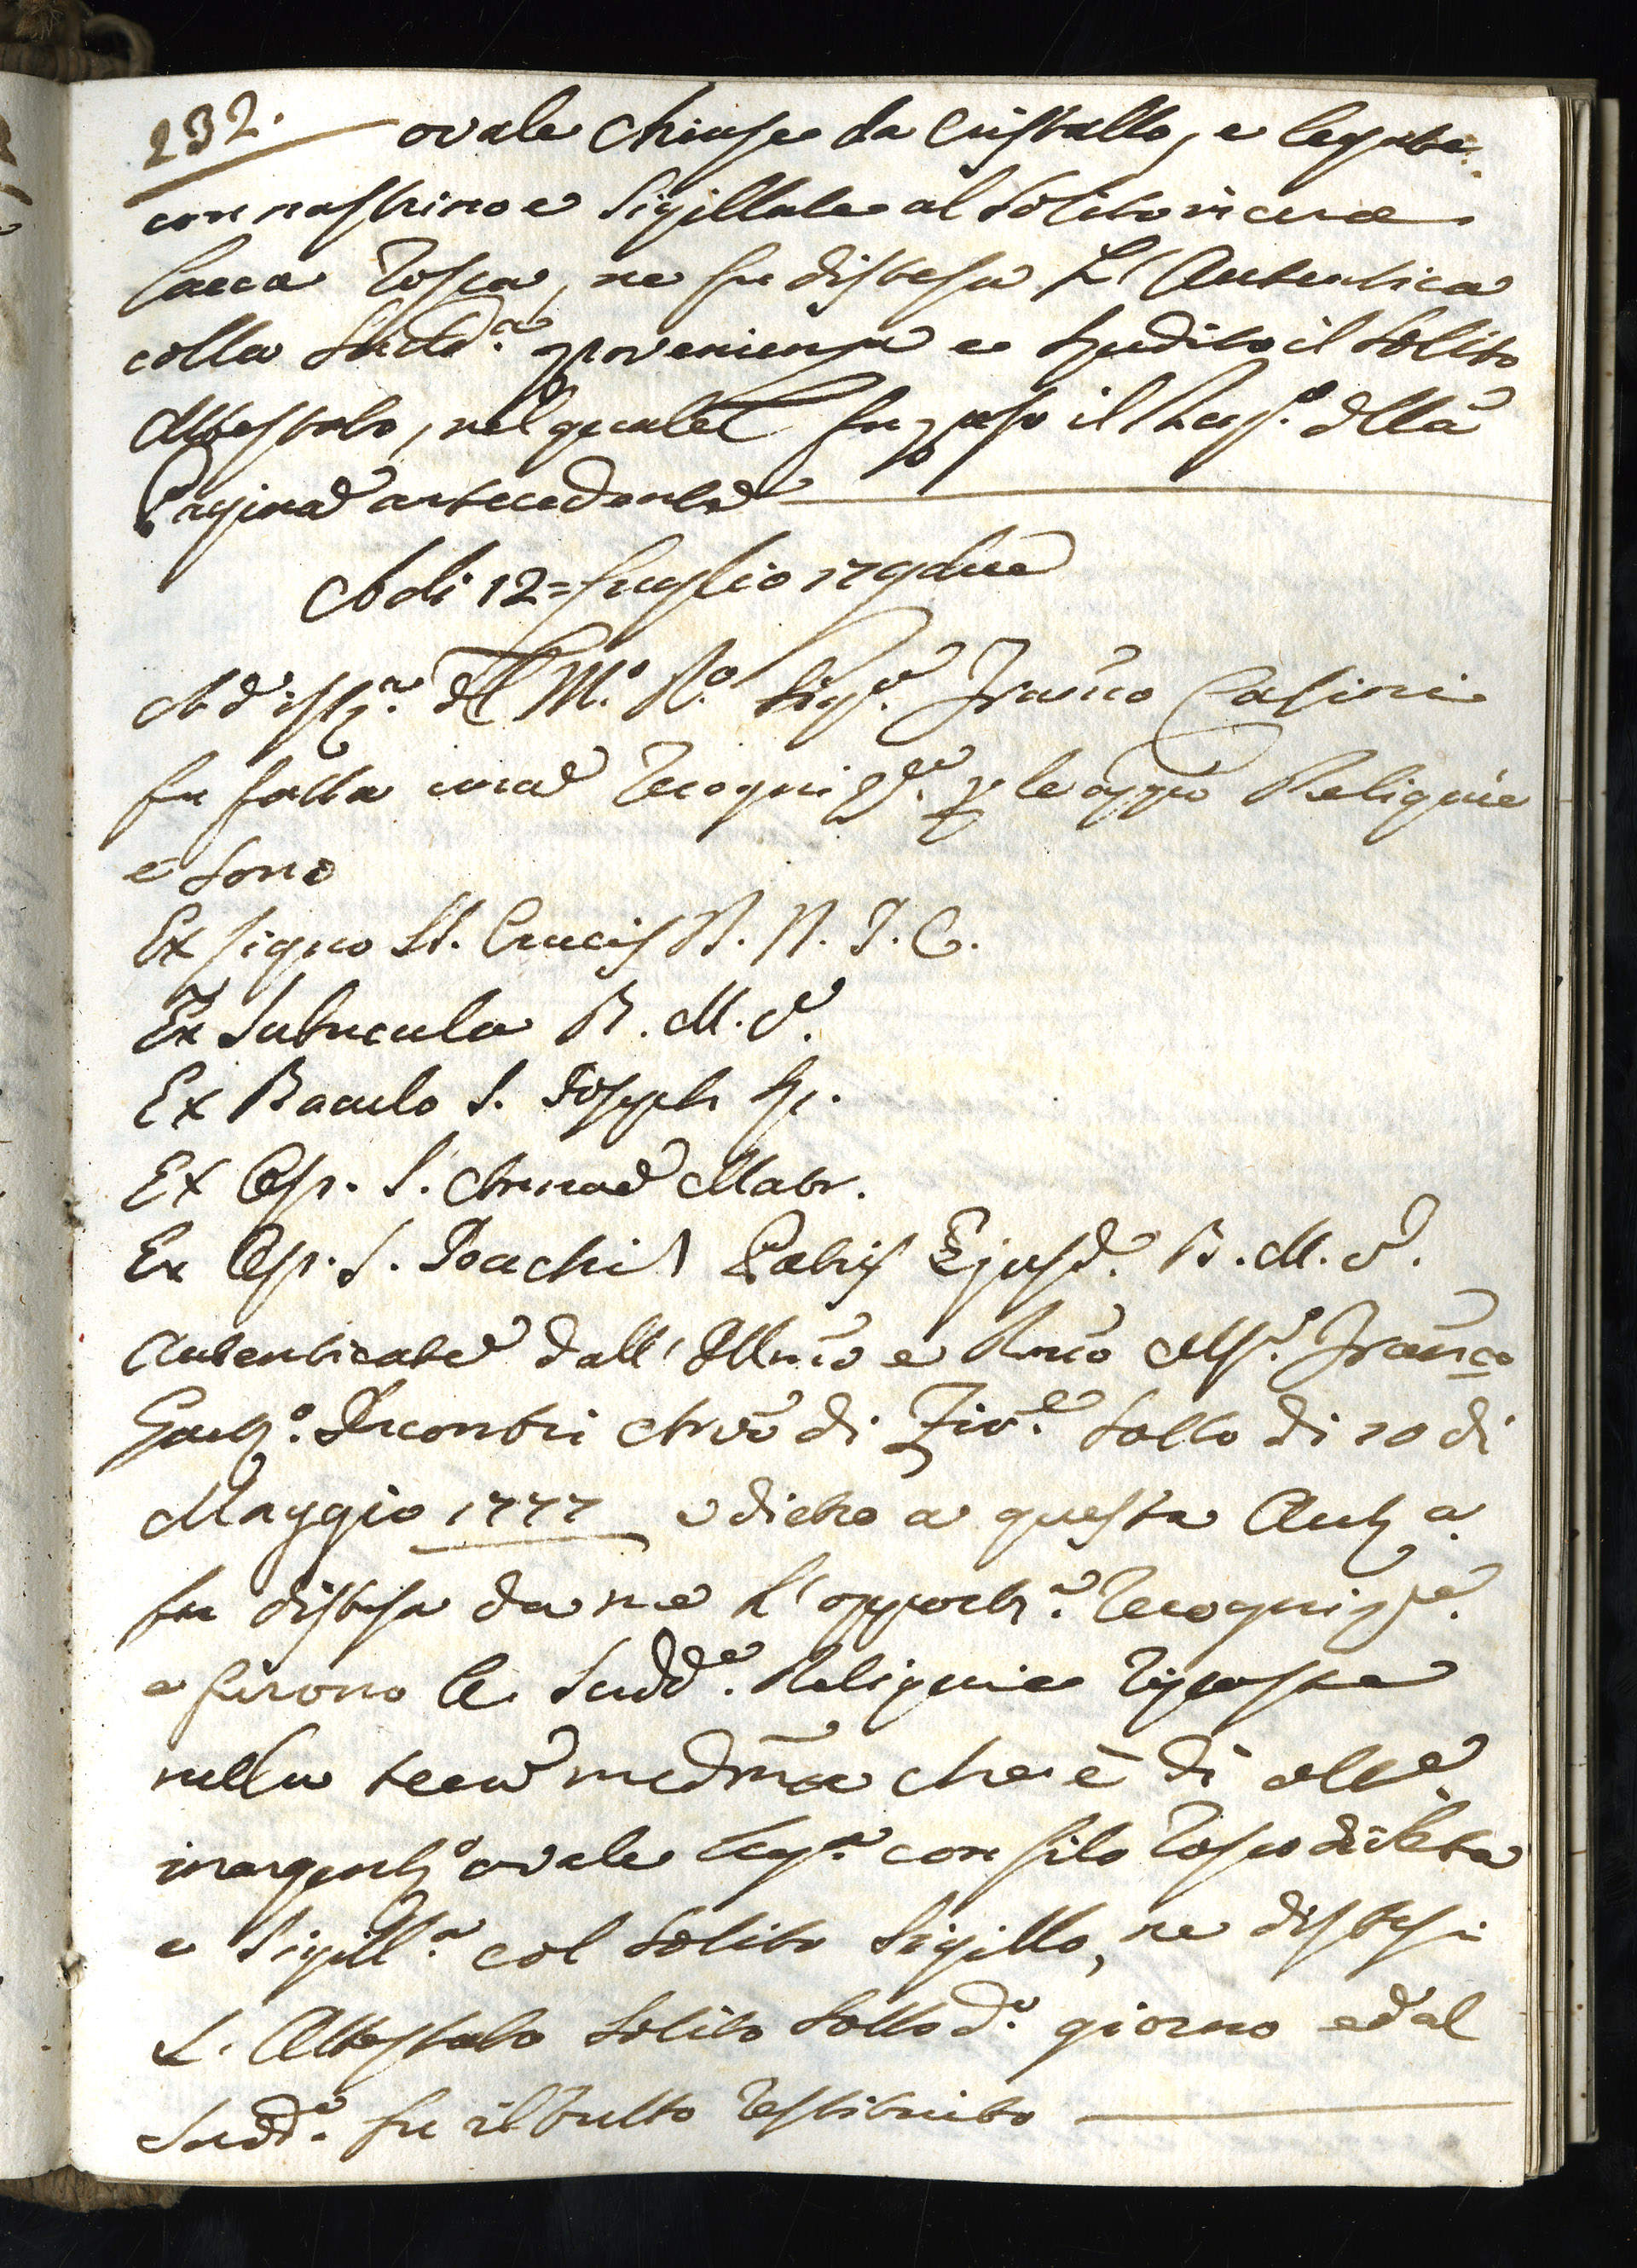 232. ovale chiuse da Cristallo, e legate
con nastrino e Sigillate al Solito in cera
lacca rossa, ne fu distesa L'Autentica
colla Sudd.a provenienza e spedito il Solito
Attestato, nel quale fu il della
Pagina antecedente
Adi 12= Luglio 179due
Ad ist.a del M.o R.o Sig.e Franco Casini
fu fatta una recogniz.e p le appo Reliquie
e sono
Ex Ligno SS. Crucis N. J. C.
Ex Subucula B. M. V.
Ex Baculo S. Joseph Sp.
Ex Osp. S. Annae Matr.
Ex Osp. S. Joachi Patris Ejusd. B. M. V.
Autenticate dall'Illmo e Rmo Franco
Gaet.o Incontri Arcvo di Fir.e Sotto di 20 di
Maggio 1777 e dietro a questa Aut.a
fu distesa da me L'opport.a recogniz.e
e furono le Sudd.e Reliquie riposte
nella teca medma che è di ott.e
inargent.o ovale leg.a con filo rosso di Seta
e Sigill.a col Solito Sigillo, ne distesi
L'Attestato Solito Sotto d.o giorno ed al
Sudd.o fu il tutto restituito